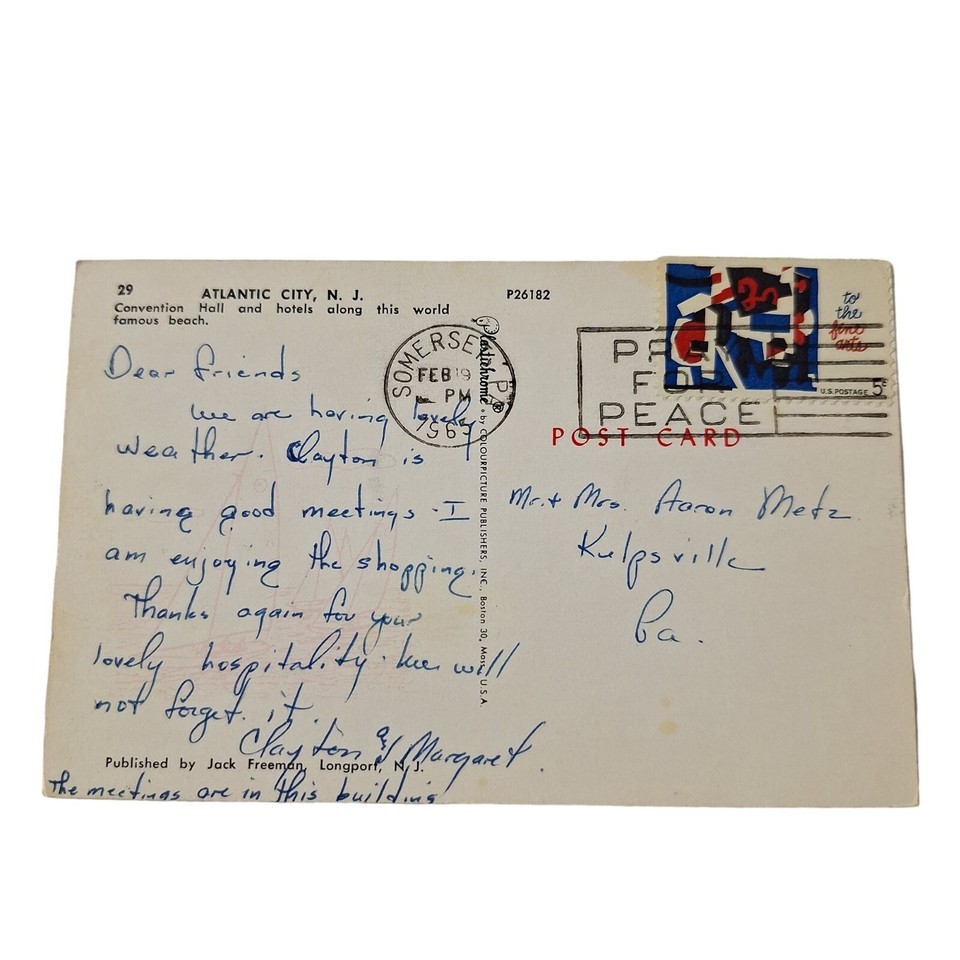 29 ATLANTIC CITY, N. J.
Convention Hall and hotels along this world
famous beach.
P26182
Dear friends
We are having lovely
weather. Clayton is
having good meetings - I
am enjoying the shopping.
Thanks again for your
lovely hospitality. We will
not forget it.
Clayton & Margaret.
Published by Jack Freeman, Longport, N. J.
The meetings are in this building
SOMERSET, PA
FEB 19
PM
Plastichrome ® by COLOURPICTURE PUBLISHERS, INC., Boston 30, Mass., U.S.A.
to
the
fine
arts
U.S. POSTAGE 5¢
PRAY
FOR
PEACE
POST CARD
Mr. + Mrs. Aaron Metz
Kulpsville
Pa.